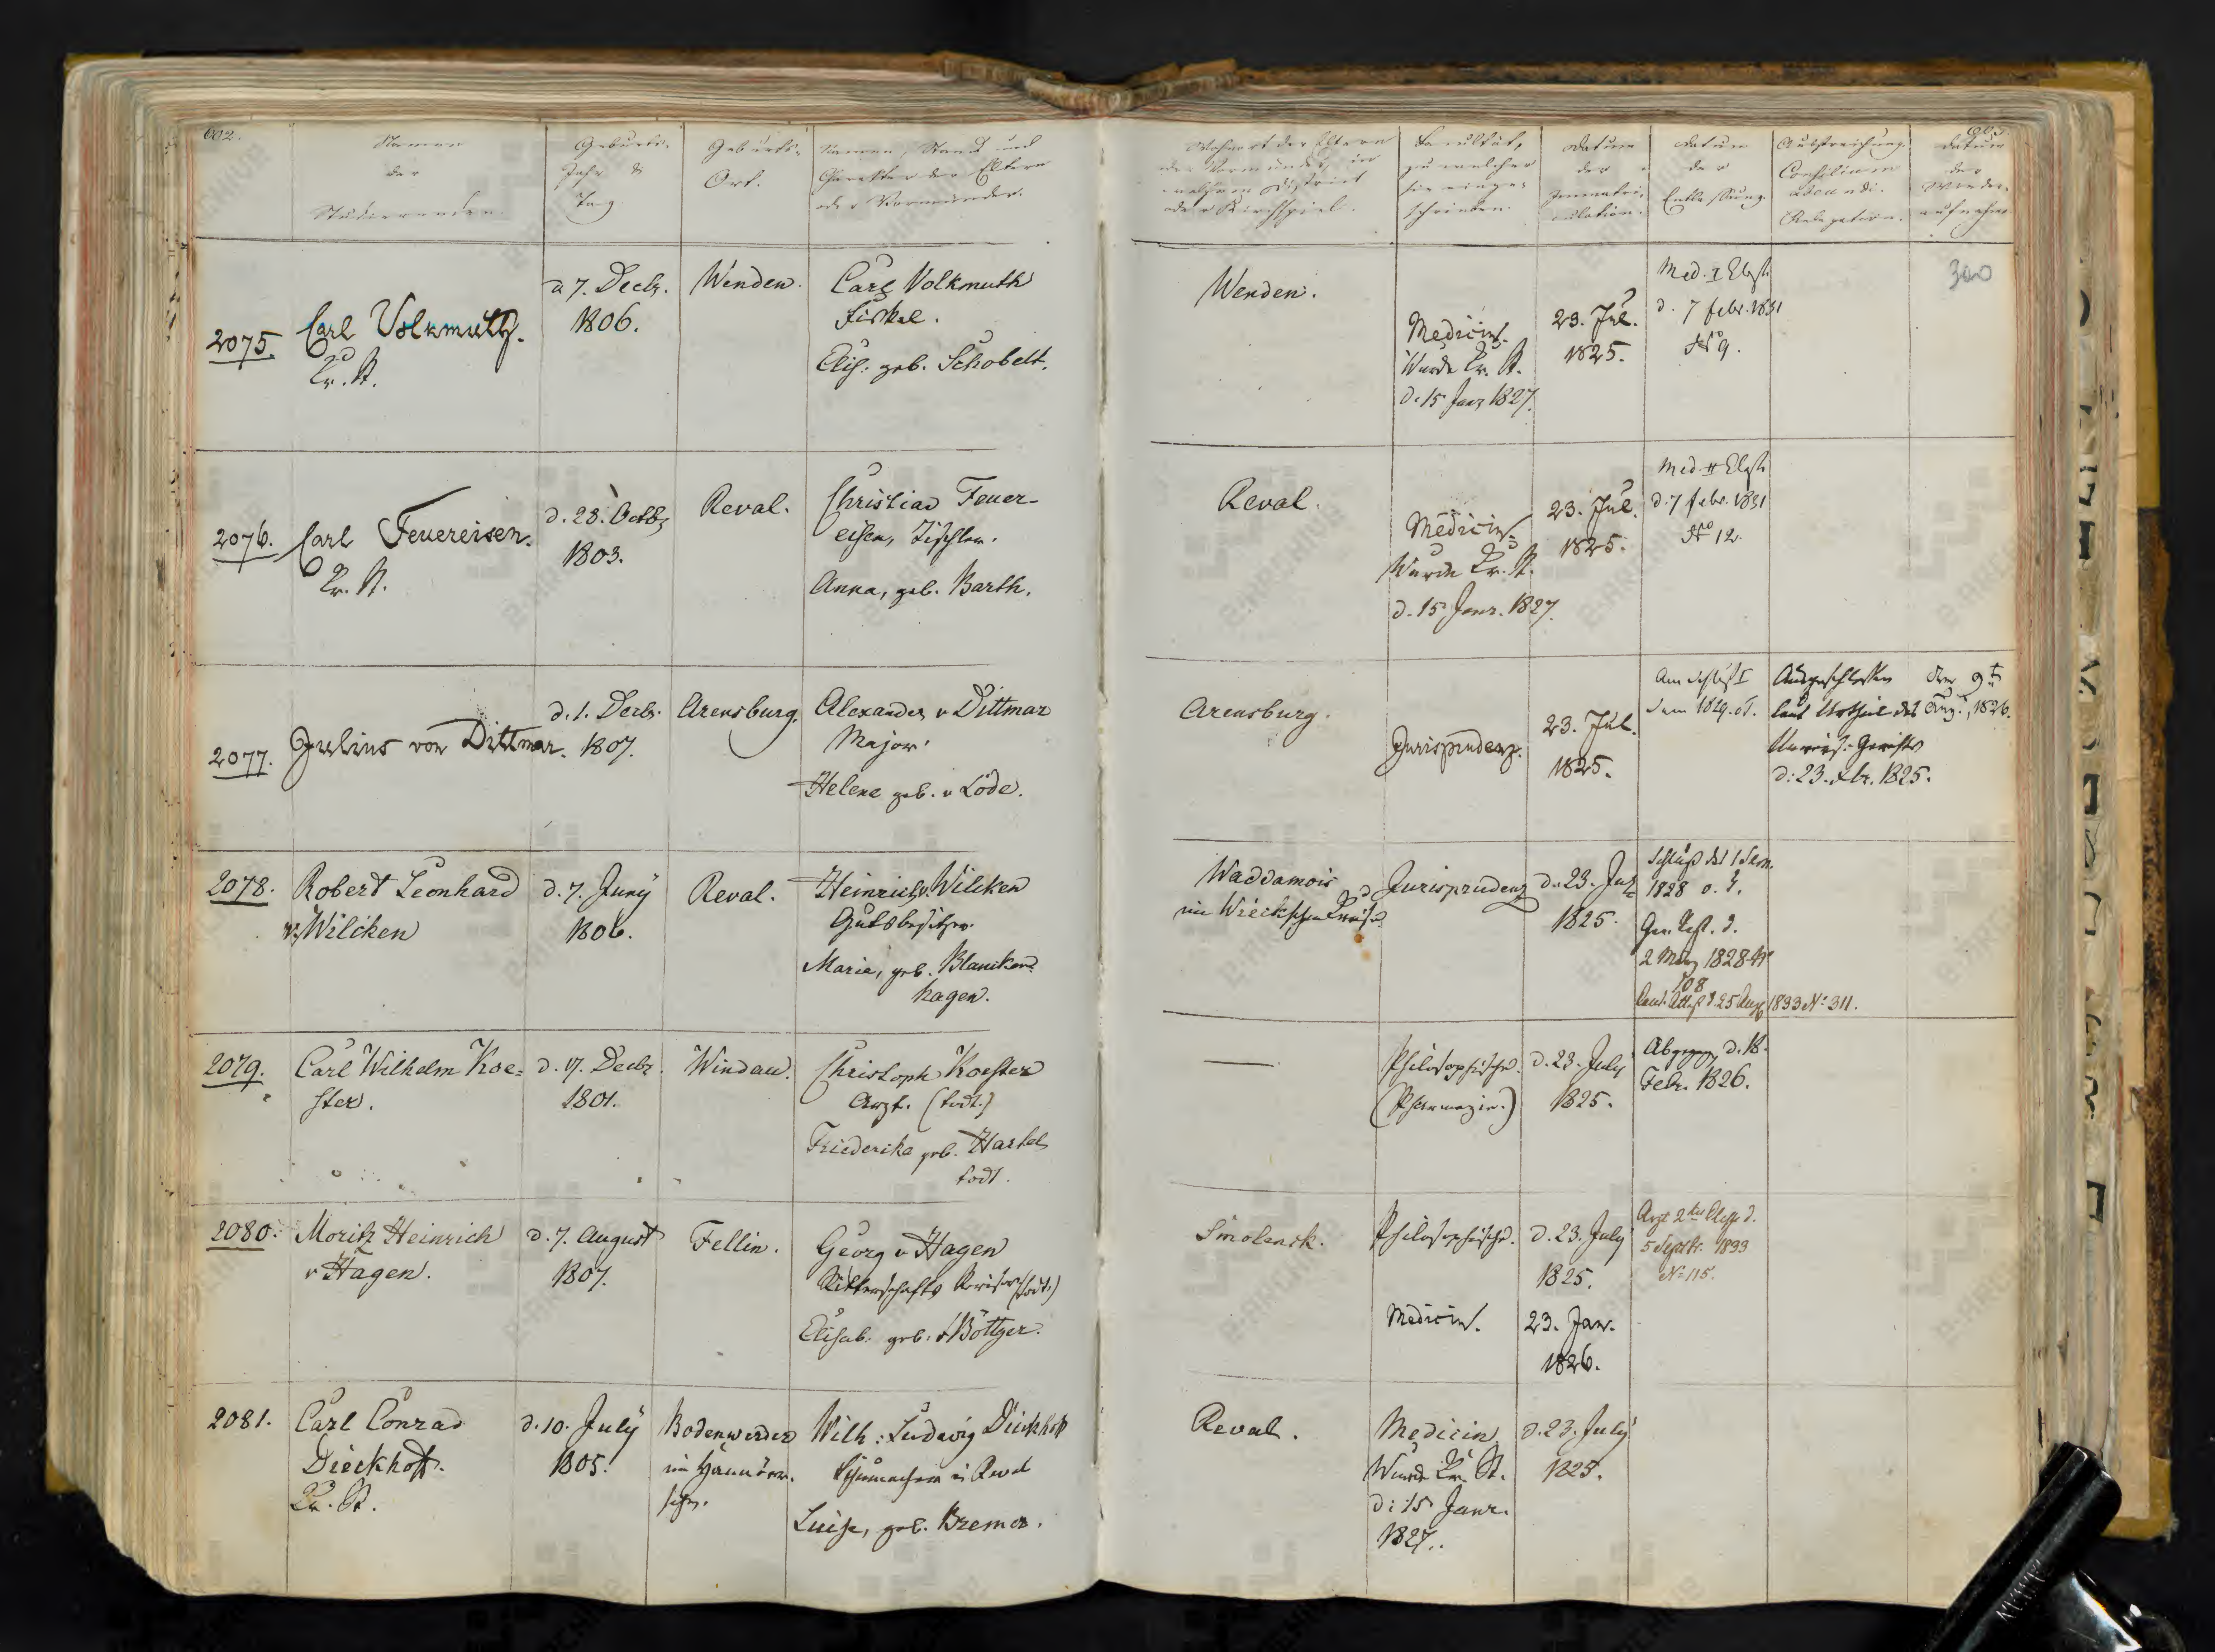 602.
Namen
der
Studierenden.
Geburts-
Jahr &
Tag
Geburts-
Ort.
Namen, Stand und
Charakter der Eltern
oder Vormünder.
Wohnort der Eltern
oder Vormünder, in
welchem District
oder Kirchspiel.
Facultät,
zu welcher
sie einge-
schrieben.
Datum
der
Immatri-
culation.
Datum
der
Entlassung.
Ausstreichung
Consilium
abeundi.
Relegation.
Datum
der
Wieder-
aufnahme
2075.
Carl Volkmuth.
Kr. St.
d 7. Decbr.
1806.
Wenden.
Carl Volkmuth
Elis: geb. Schobelt.
Wenden.
Medicin.
Wurde Kr. St.
d. 15 Janr 1827.
23. Jul.
1825.
Med. I
d. 7 febr. 1831
No 9.
300
2076.
Carl Feuereisen.
Kr. St.
d. 28. Octbr
1803.
Reval.
Christian Feuer-
eisen, Tischler.
Anna, geb. Barth.
Reval.
Medicin.
Wurde Kr. St.
d. 15 Janr. 1827.
23. Jul.
1825.
Med. II
d. 7 febr. 1831
No 12.
2077.
Julius von Dittmar.
d. 1. Decbr.
1807.
Arensburg.
Alexander v Dittmar
Major.
Helene geb. v Lode.
Arensburg.
Jurisprudenz.
23. Jul.
1825.
Am Schluß I
Sem 1829.
Ausgeschlossen
laut Urtheil des
Univers.-Gerichts
d: 23. 1825.
Den 9t
Aug., 1826.
2078.
Robert Leonhard
v. Wilcken
d. 7. Juny
1806.
Reval.
Heinrich v. Wilcken
Gutsbesitzer.
Marie, geb. Blancken-
hagen.
Waddamois
im Wieckschen Kreise.
Jurisprudenz
d. 23. Jul
1825.
Schluß des 1 Sem.
1828 o. Z.
2 März 1828 No
108
d 25 Aug 1833 No 311.
2079.
Carl Wilhelm Koe-
ster.
d. 17. Decbr.
1801.
Windau.
Christoph Koester
Arzt. (todt.)
Friederika geb. Hartel
todt.
Philosophische.
(Pharmazie.)
d. 23. July
1825.
Abgegang. d. 18.
Febr. 1826.
2080.
Moritz Heinrich
v Hagen.
d. 7. August
1807.
Fellin.
Georg v Hagen
Ritterschafts Revisor (todt.)
Elisab. geb: v Böttger.
Smolensk.
Philosophische.
Medicin.
d. 23. July
1825.
23. Jan.
1826.
Arzt 2ter Classe d.
5 Septbr. 1833
No 115.
2081.
Carl Conrad
Dieckhoff.
Kr. St.
d. 10. July
1805.
Bodenwerder
im Hannöver-
schen.
Wilh: Ludwig Dieckhoff
Schumacher in Reval
Luise, geb. Bremer.
Reval.
Medicin.
Wurde Kr. St.
d: 15 Janr.
1827.
d. 23. July
1825.